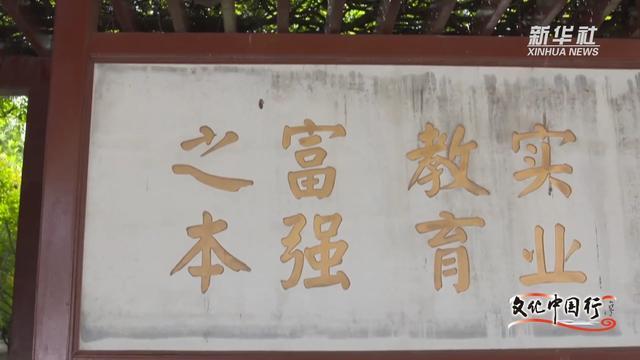 实业
教育
富强
之本
新华社
XINHUA NEWS
文化中国行